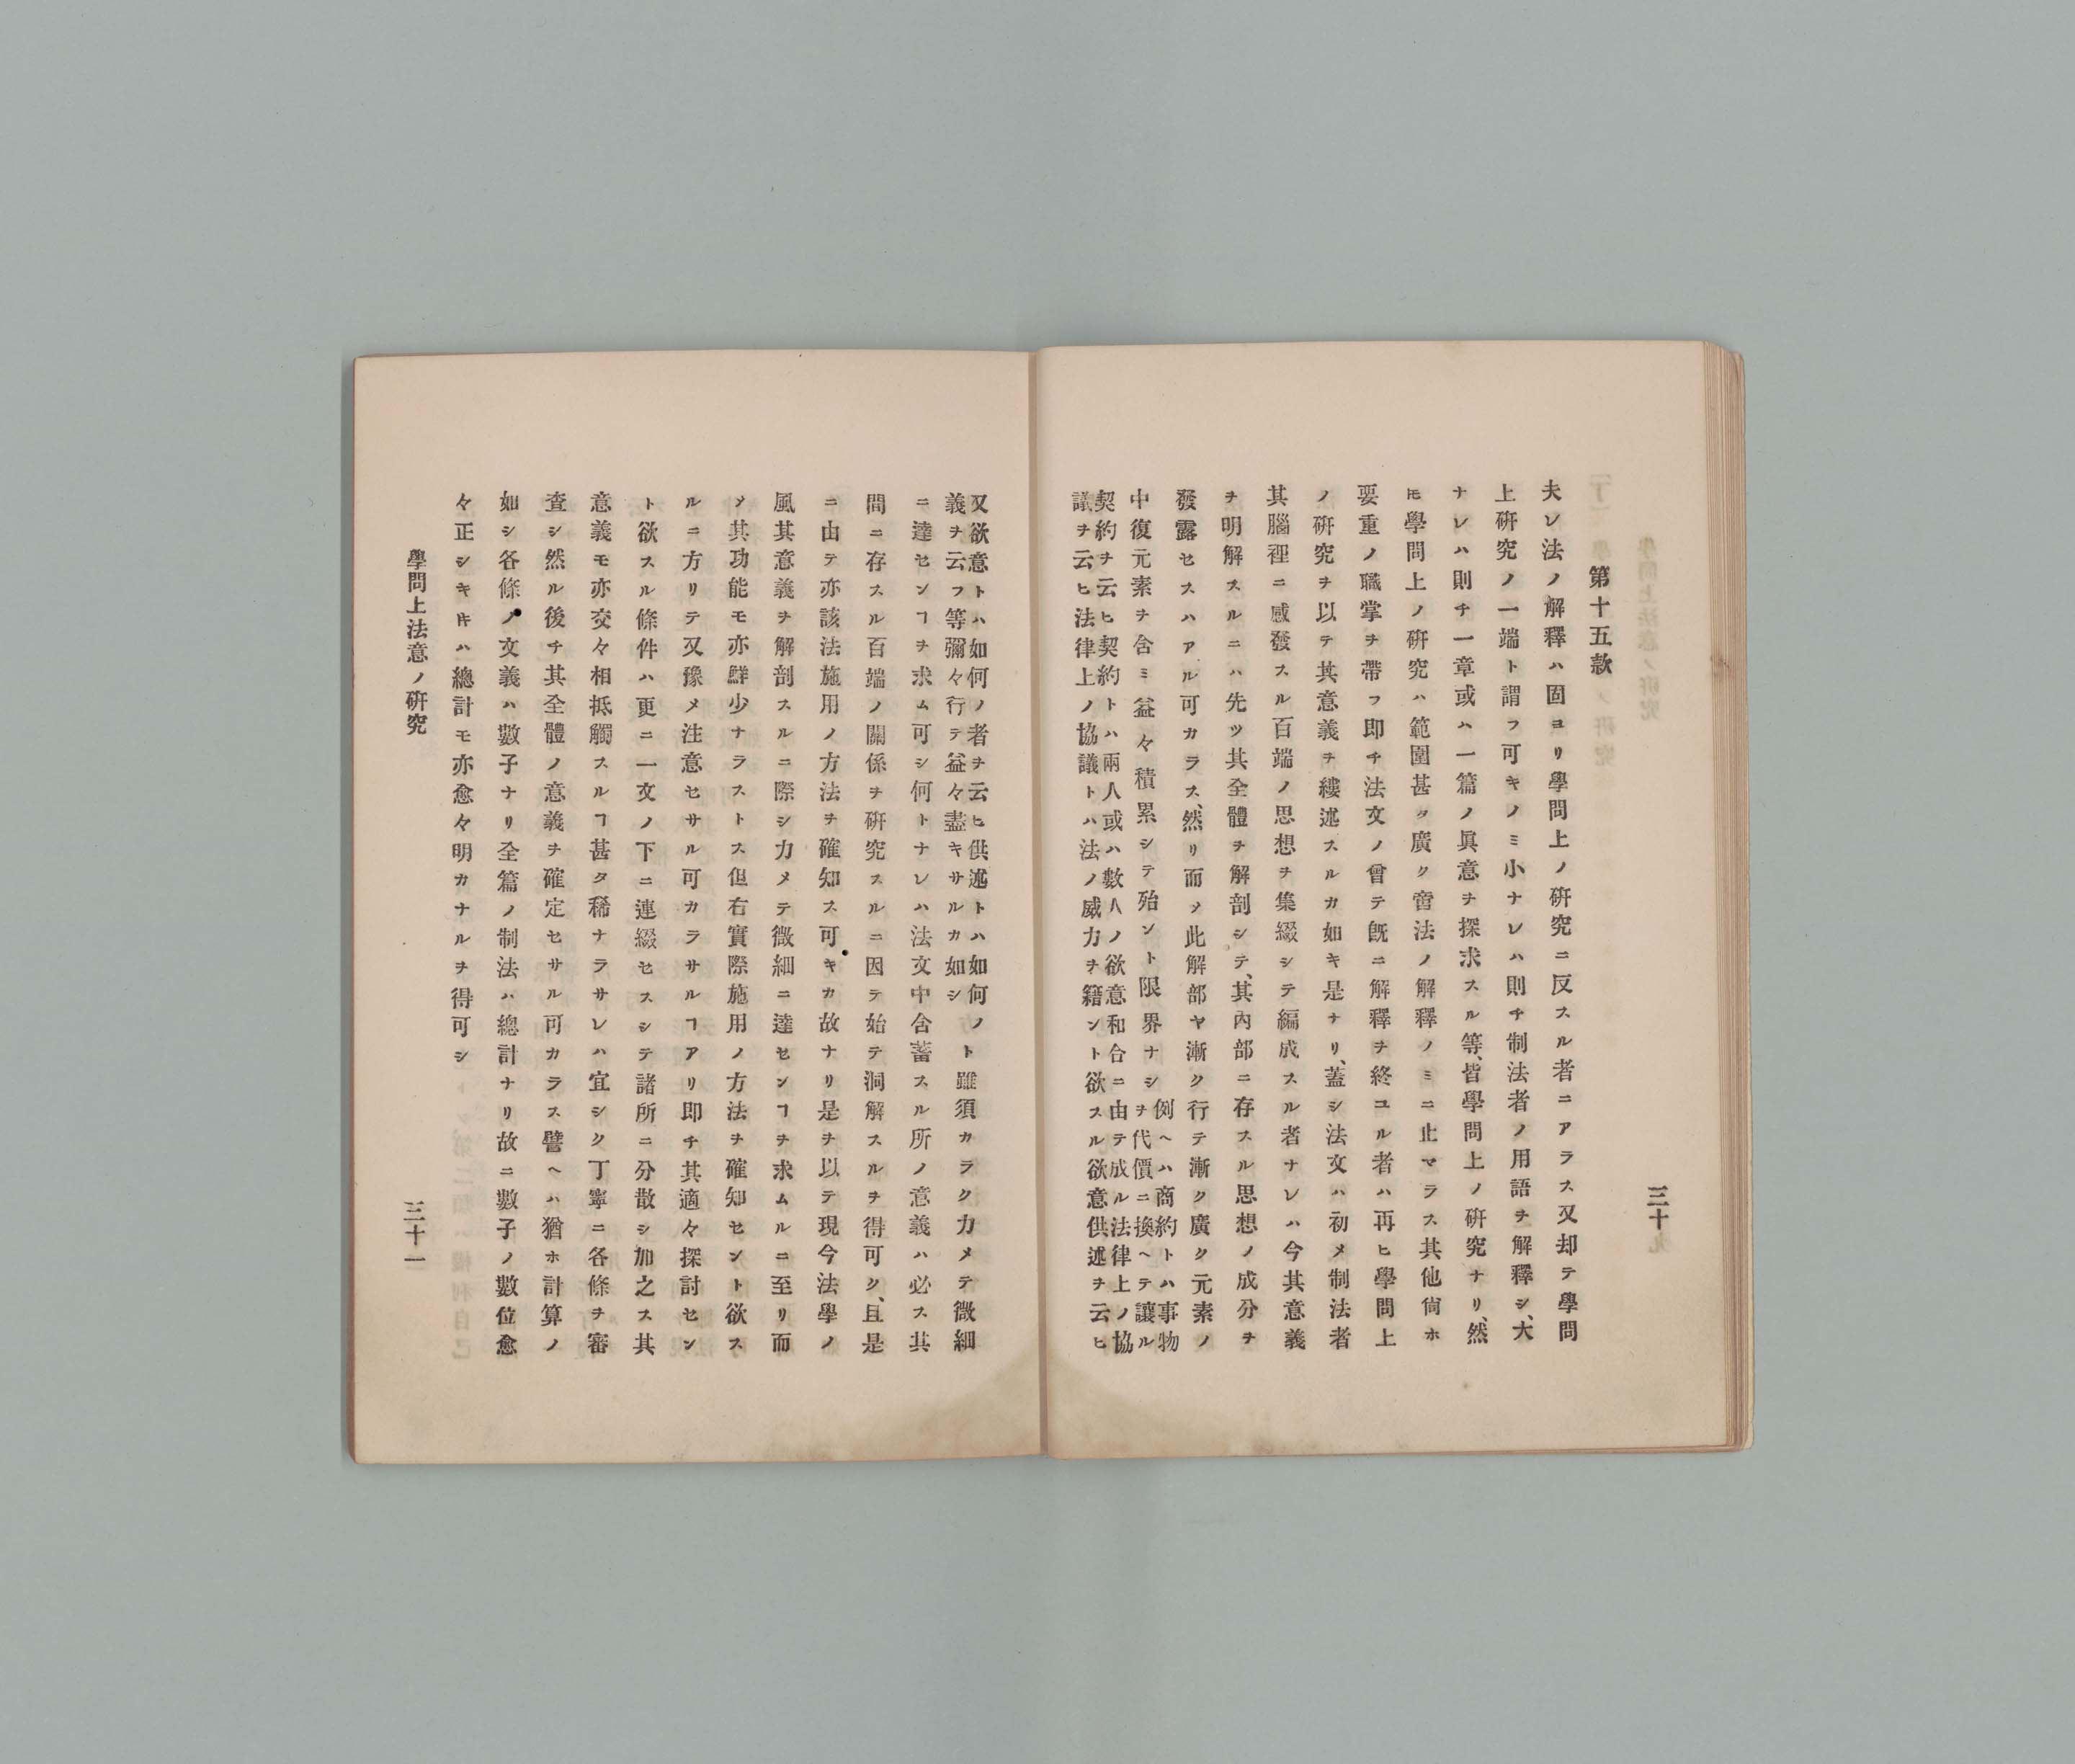 三十
第十五款
夫レ法ノ解釋ハ固ヨリ學問上ノ硏究ニ反スル者ニアラス又却テ學問
上硏究ノ一端ト謂フ可キノミ小ナレハ則チ制法者ノ用語ヲ解釋シ、大
ナレハ則チ一章或ハ一篇ノ眞意ヲ探求スル等、皆學問上ノ硏究ナリ、然
𪜈學問上ノ硏究ハ範圍甚タ廣ク啻法ノ解釋ノミニ止マラス其他尙ホ
要重ノ職掌ヲ帶フ即チ法文ノ曾テ旣ニ解釋ヲ終ユル者ハ再ヒ學問上
ノ硏究ヲ以テ其意義ヲ縷述スルカ如キ是ナリ、蓋シ法文ハ初メ制法者
其腦裡ニ感發スル百端ノ思想ヲ集綴シテ編成スル者ナレハ今其意義
ヲ明解スルニハ先ツ其全體ヲ解剖シテ、其內部ニ存スル思想ノ成分ヲ
發露セスハアル可カラス、然リ而〆此解部ヤ漸ク行テ漸ク廣ク元素ノ
中復元素ヲ含ミ益々積累シテ殆ント限界ナシ例ヘハ商約トハ事物
ヲ代價ニ換ヘテ讓ル
契約ヲ云ヒ契約トハ兩人或ハ數人ノ欲意和合ニ由テ成ル法律上ノ協
議ヲ云ヒ法律上ノ協議トハ法ノ威力ヲ籍ント欲スル欲意供述ヲ云ヒ
又欲意トハ如何ノ者ヲ云ヒ供述トハ如何ノ
義ヲ云フ等彌々行テ益々盡キサルカ如シト雖須カラク力メテ微細
ニ達センヿヲ求ム可シ何トナレハ法文中含蓄スル所ノ意義ハ必ス其
間ニ存スル百端ノ關係ヲ硏究スルニ因テ始テ洞解スルヲ得可ク、且是
ニ由テ亦該法施用ノ方法ヲ確知ス可キカ故ナリ是ヲ以テ現今法學ノ
風其意義ヲ解剖スルニ際シ力メテ微細ニ達センヿヲ求ムルニ至リ而
〆其功能モ亦鮮少ナラストス但右實際施用ノ方法ヲ確知セント欲ス
ルニ方リテ又豫メ注意セサル可カラサルヿアリ即チ其適々探討セン
ト欲スル條件ハ更ニ一文ノ下ニ連綴セスシテ諸所ニ分散シ加之ス其
意義モ亦交々相抵觸スルヿ甚タ稀ナラサレハ宜シク丁寧ニ各條ヲ審
査シ然ル後チ其全體ノ意義ヲ確定セサル可カラス譬ヘハ猶ホ計算ノ
如シ各條ノ文義ハ數子ナリ全篇ノ制法ハ總計ナリ故ニ數子ノ數位愈
々正シキ𪜈ハ總計モ亦愈々明カナルヲ得可シ
學問上法意ノ硏究
三十一